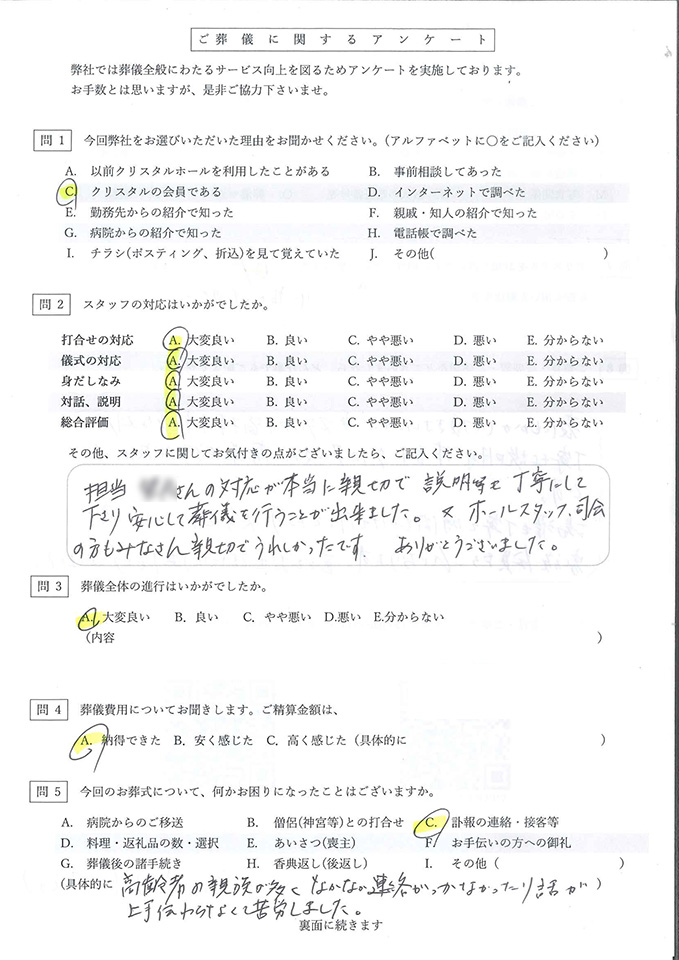 ご葬儀に関するアンケート
弊社では葬儀全般にわたるサービス向上を図るためアンケートを実施しております。
お手数とは思いますが、是非ご協力下さいませ。
問 1 今回弊社をお選びいただいた理由をお聞かせください。(アルファベットに○をご記入ください)
A. 以前クリスタルホールを利用したことがある B. 事前相談してあった
C. クリスタルの会員である D. インターネットで調べた
E. 勤務先からの紹介で知った F. 親戚・知人の紹介で知った
G. 病院からの紹介で知った H. 電話帳で調べた
I. チラシ(ポスティング、折込)を見て覚えていた J. その他( )
問 2 スタッフの対応はいかがでしたか。
打合せの対応 A. 大変良い B. 良い C. やや悪い D. 悪い E. 分からない
儀式の対応 A. 大変良い B. 良い C. やや悪い D. 悪い E. 分からない
身だしなみ A. 大変良い B. 良い C. やや悪い D. 悪い E. 分からない
対話、説明 A. 大変良い B. 良い C. やや悪い D. 悪い E. 分からない
総合評価 A. 大変良い B. 良い C. やや悪い D. 悪い E. 分からない
その他、スタッフに関してお気付きの点がございましたら、ご記入ください。
担当 さんの対応が本当に親切で 説明等も 丁寧にして
下さり 安心して葬儀を行うことが出来ました。又 ホールスタッフ、司会
の方もみなさん親切でうれしかったです。 ありがとうございました。
問 3 葬儀全体の進行はいかがでしたか。
A. 大変良い B. 良い C. やや悪い D.悪い E.分からない
(内容 )
問 4 葬儀費用についてお聞きします。ご精算金額は、
A. 納得できた B. 安く感じた C. 高く感じた (具体的に )
問 5 今回のお葬式について、何かお困りになったことはございますか。
A. 病院からのご移送 B. 僧侶(神官等)との打合せ C. 訃報の連絡・接客等
D. 料理・返礼品の数・選択 E. あいさつ(喪主) F. お手伝いの方への御礼
G. 葬儀後の諸手続き H. 香典返し(後返し) I. その他 ( )
(具体的に 高齢者の親族が多く なかなか連絡がつかなかったり話が )
上手伝わらなくて苦労しました。
裏面に続きます